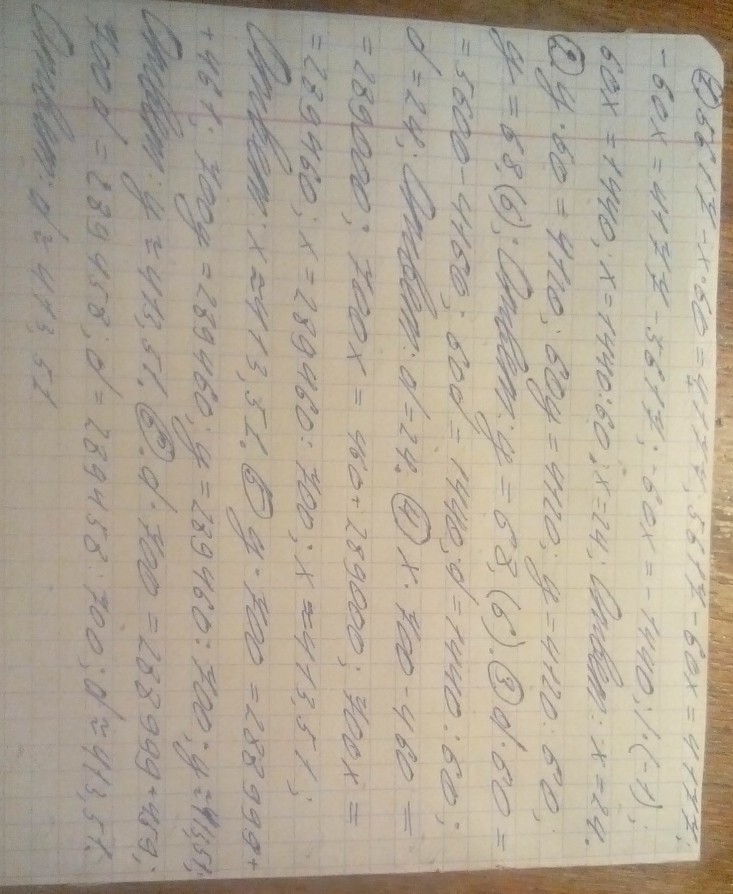 ① 5617 - x·60 = 4177; 5617 - 60x = 4177;
-60x = 4177 - 5617; -60x = -1440; |·(-1);
60x = 1440; x = 1440:60; x = 24; Ответ: x = 24.
② y·60 = 4120; 60y = 4120; y = 4120:60;
y = 68,(6); Ответ: y = 68,(6). ③ d·60 =
= 5600 - 4160; 60d = 1440; d = 1440:60;
d = 24; Ответ: d = 24. ④ x·700 - 460 =
= 289000; 700x = 460 + 289000; 700x =
= 289460; x = 289460:700; x ≈ 413,51;
Ответ: x ≈ 413,51. ⑤ y·700 = 288999 +
+ 461; 700y = 289460; y = 289460:700; y ≈ 413,51;
Ответ: y ≈ 413,51. ⑥ d·700 = 288999 + 459;
700d = 289458; d = 289458:700; d ≈ 413,51.
Ответ: d ≈ 413,51